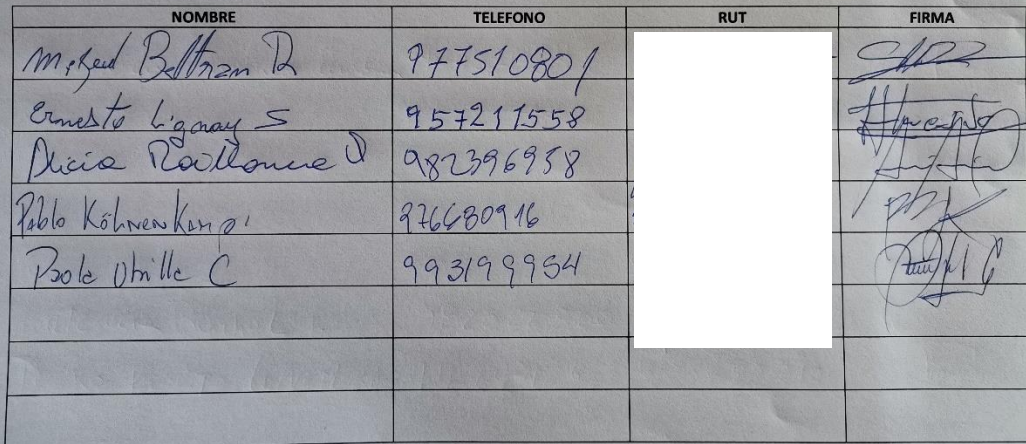 NOMBRE TELEFONO RUT FIRMA
Miguel Beltran R 977510801
Ernesto S 957211558
Alicia 982396958
Pablo Köhnenkamp 976680916
Paola C 993199954